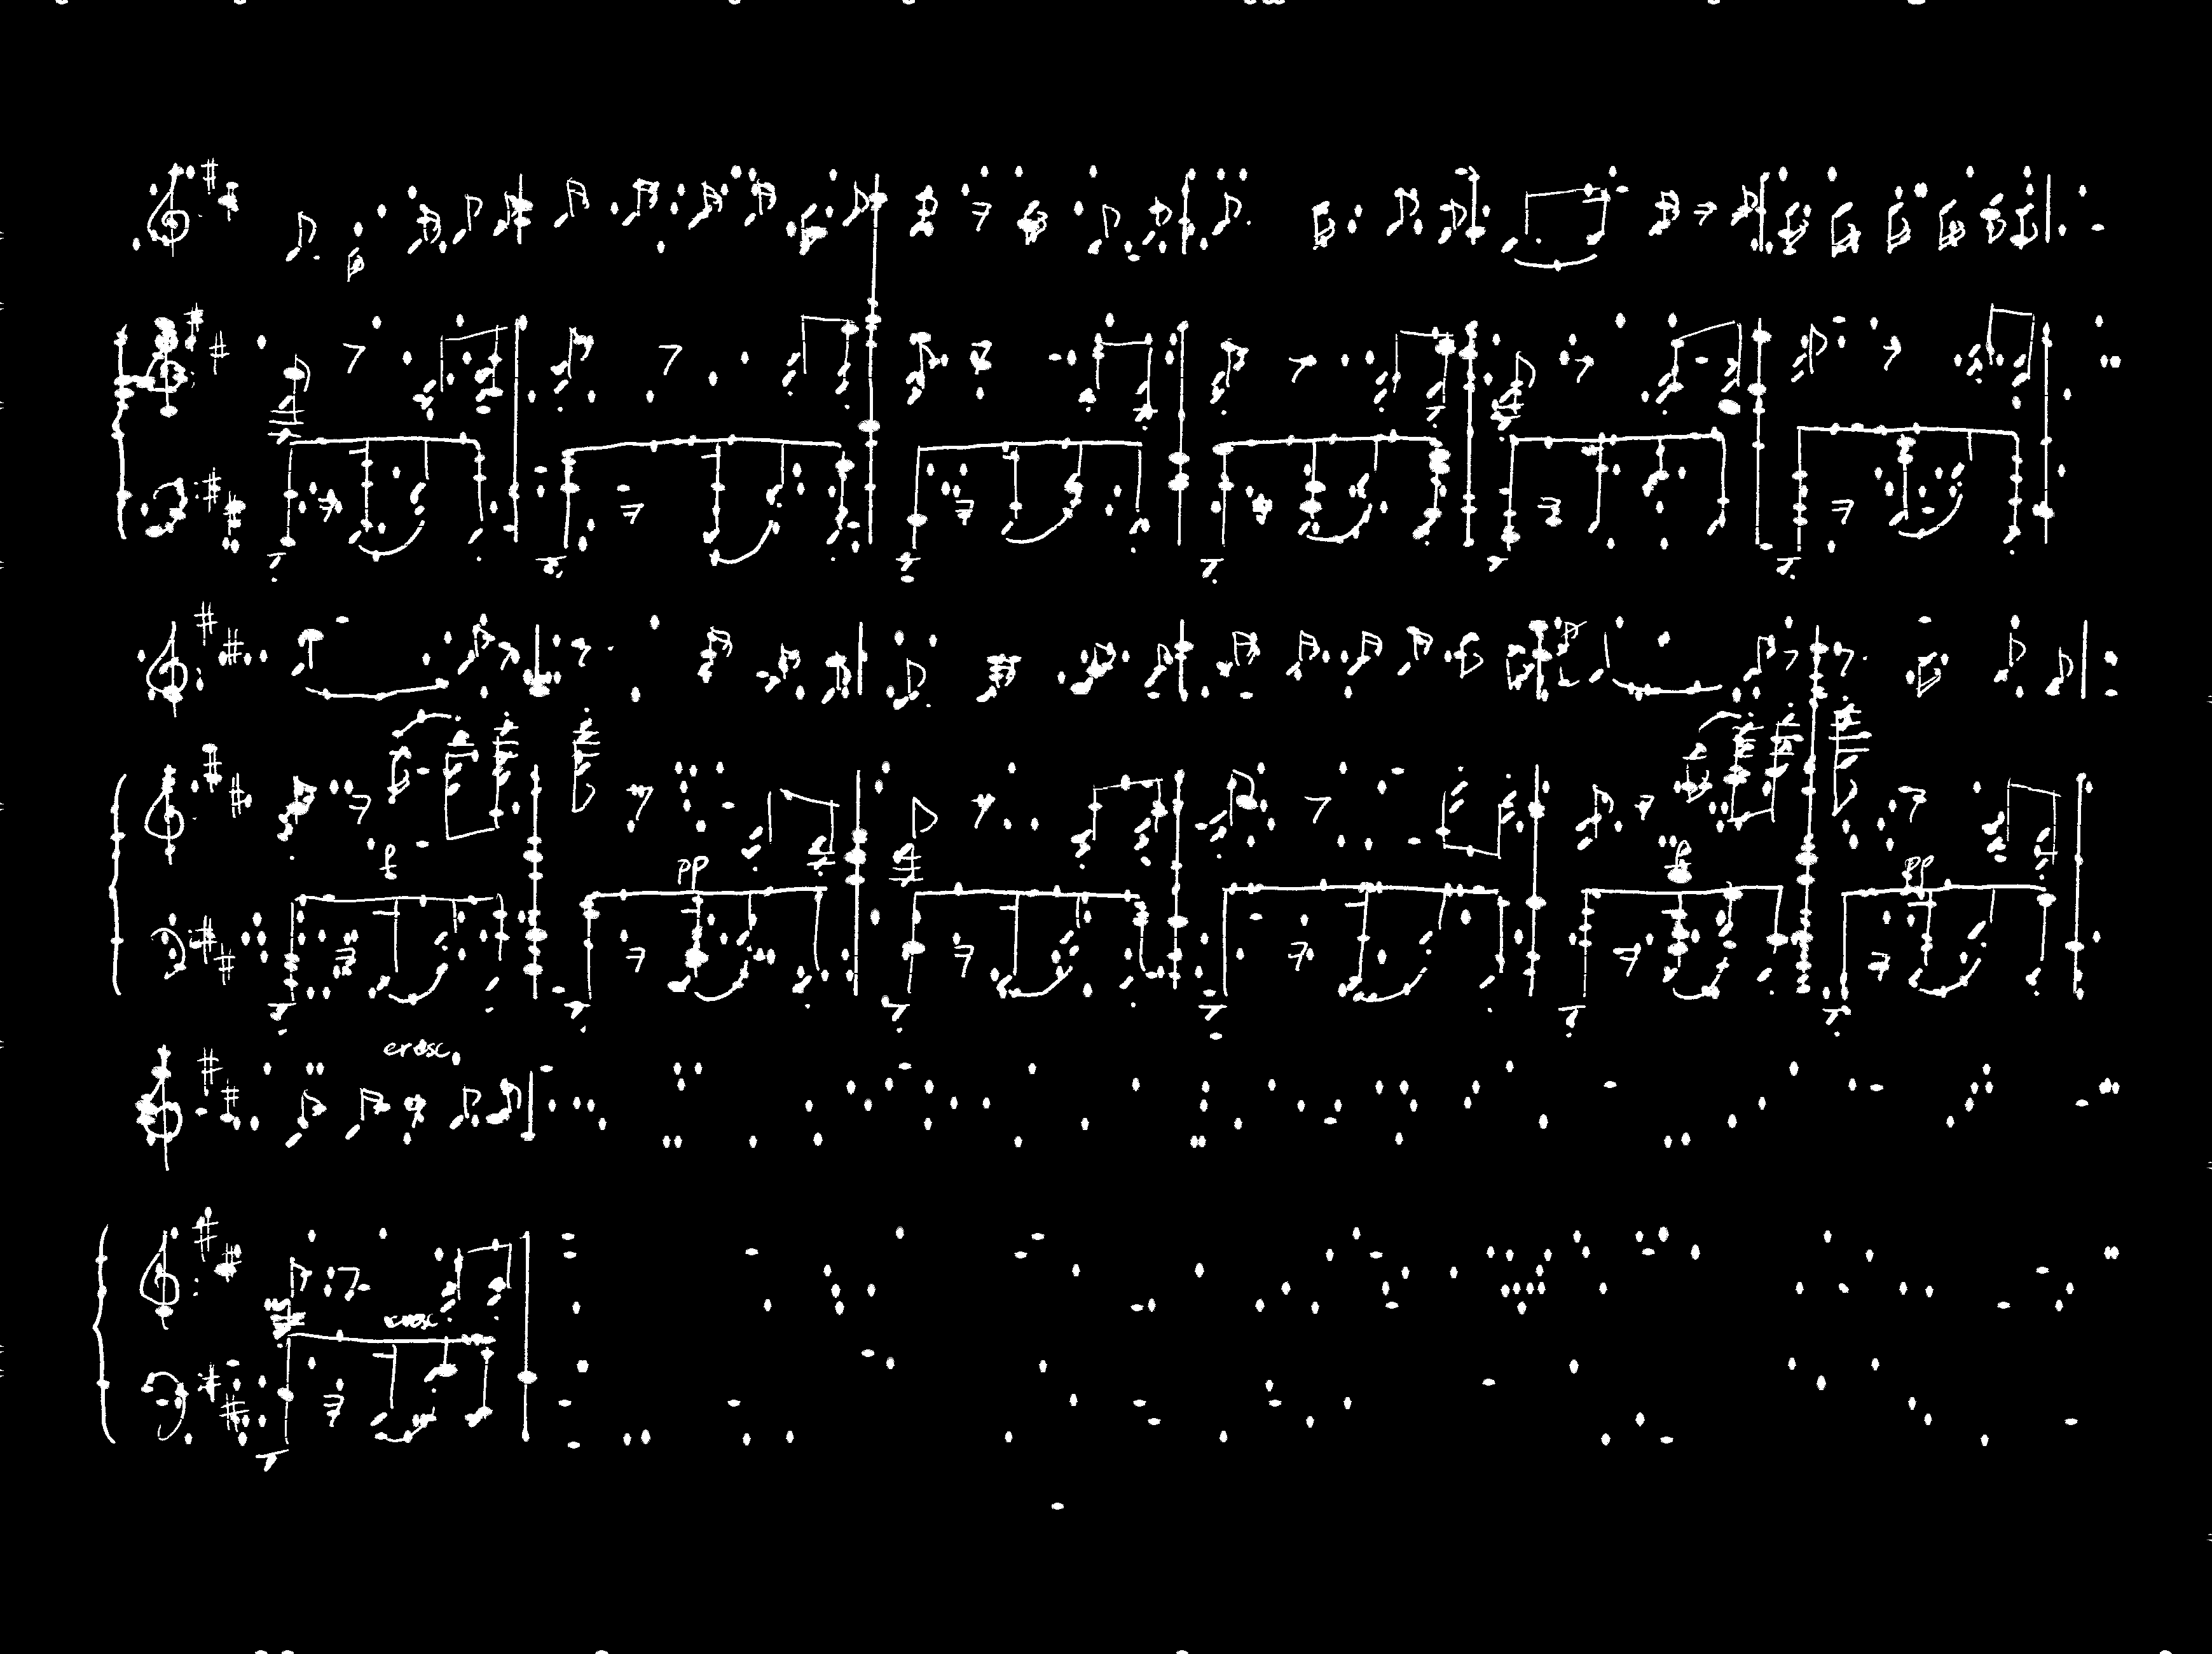 f
pp
f
pp
cresc.
cresc.